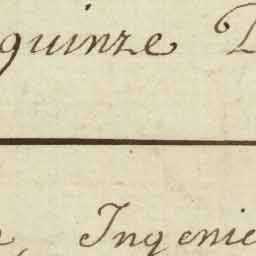 quinze D
, Ingenie